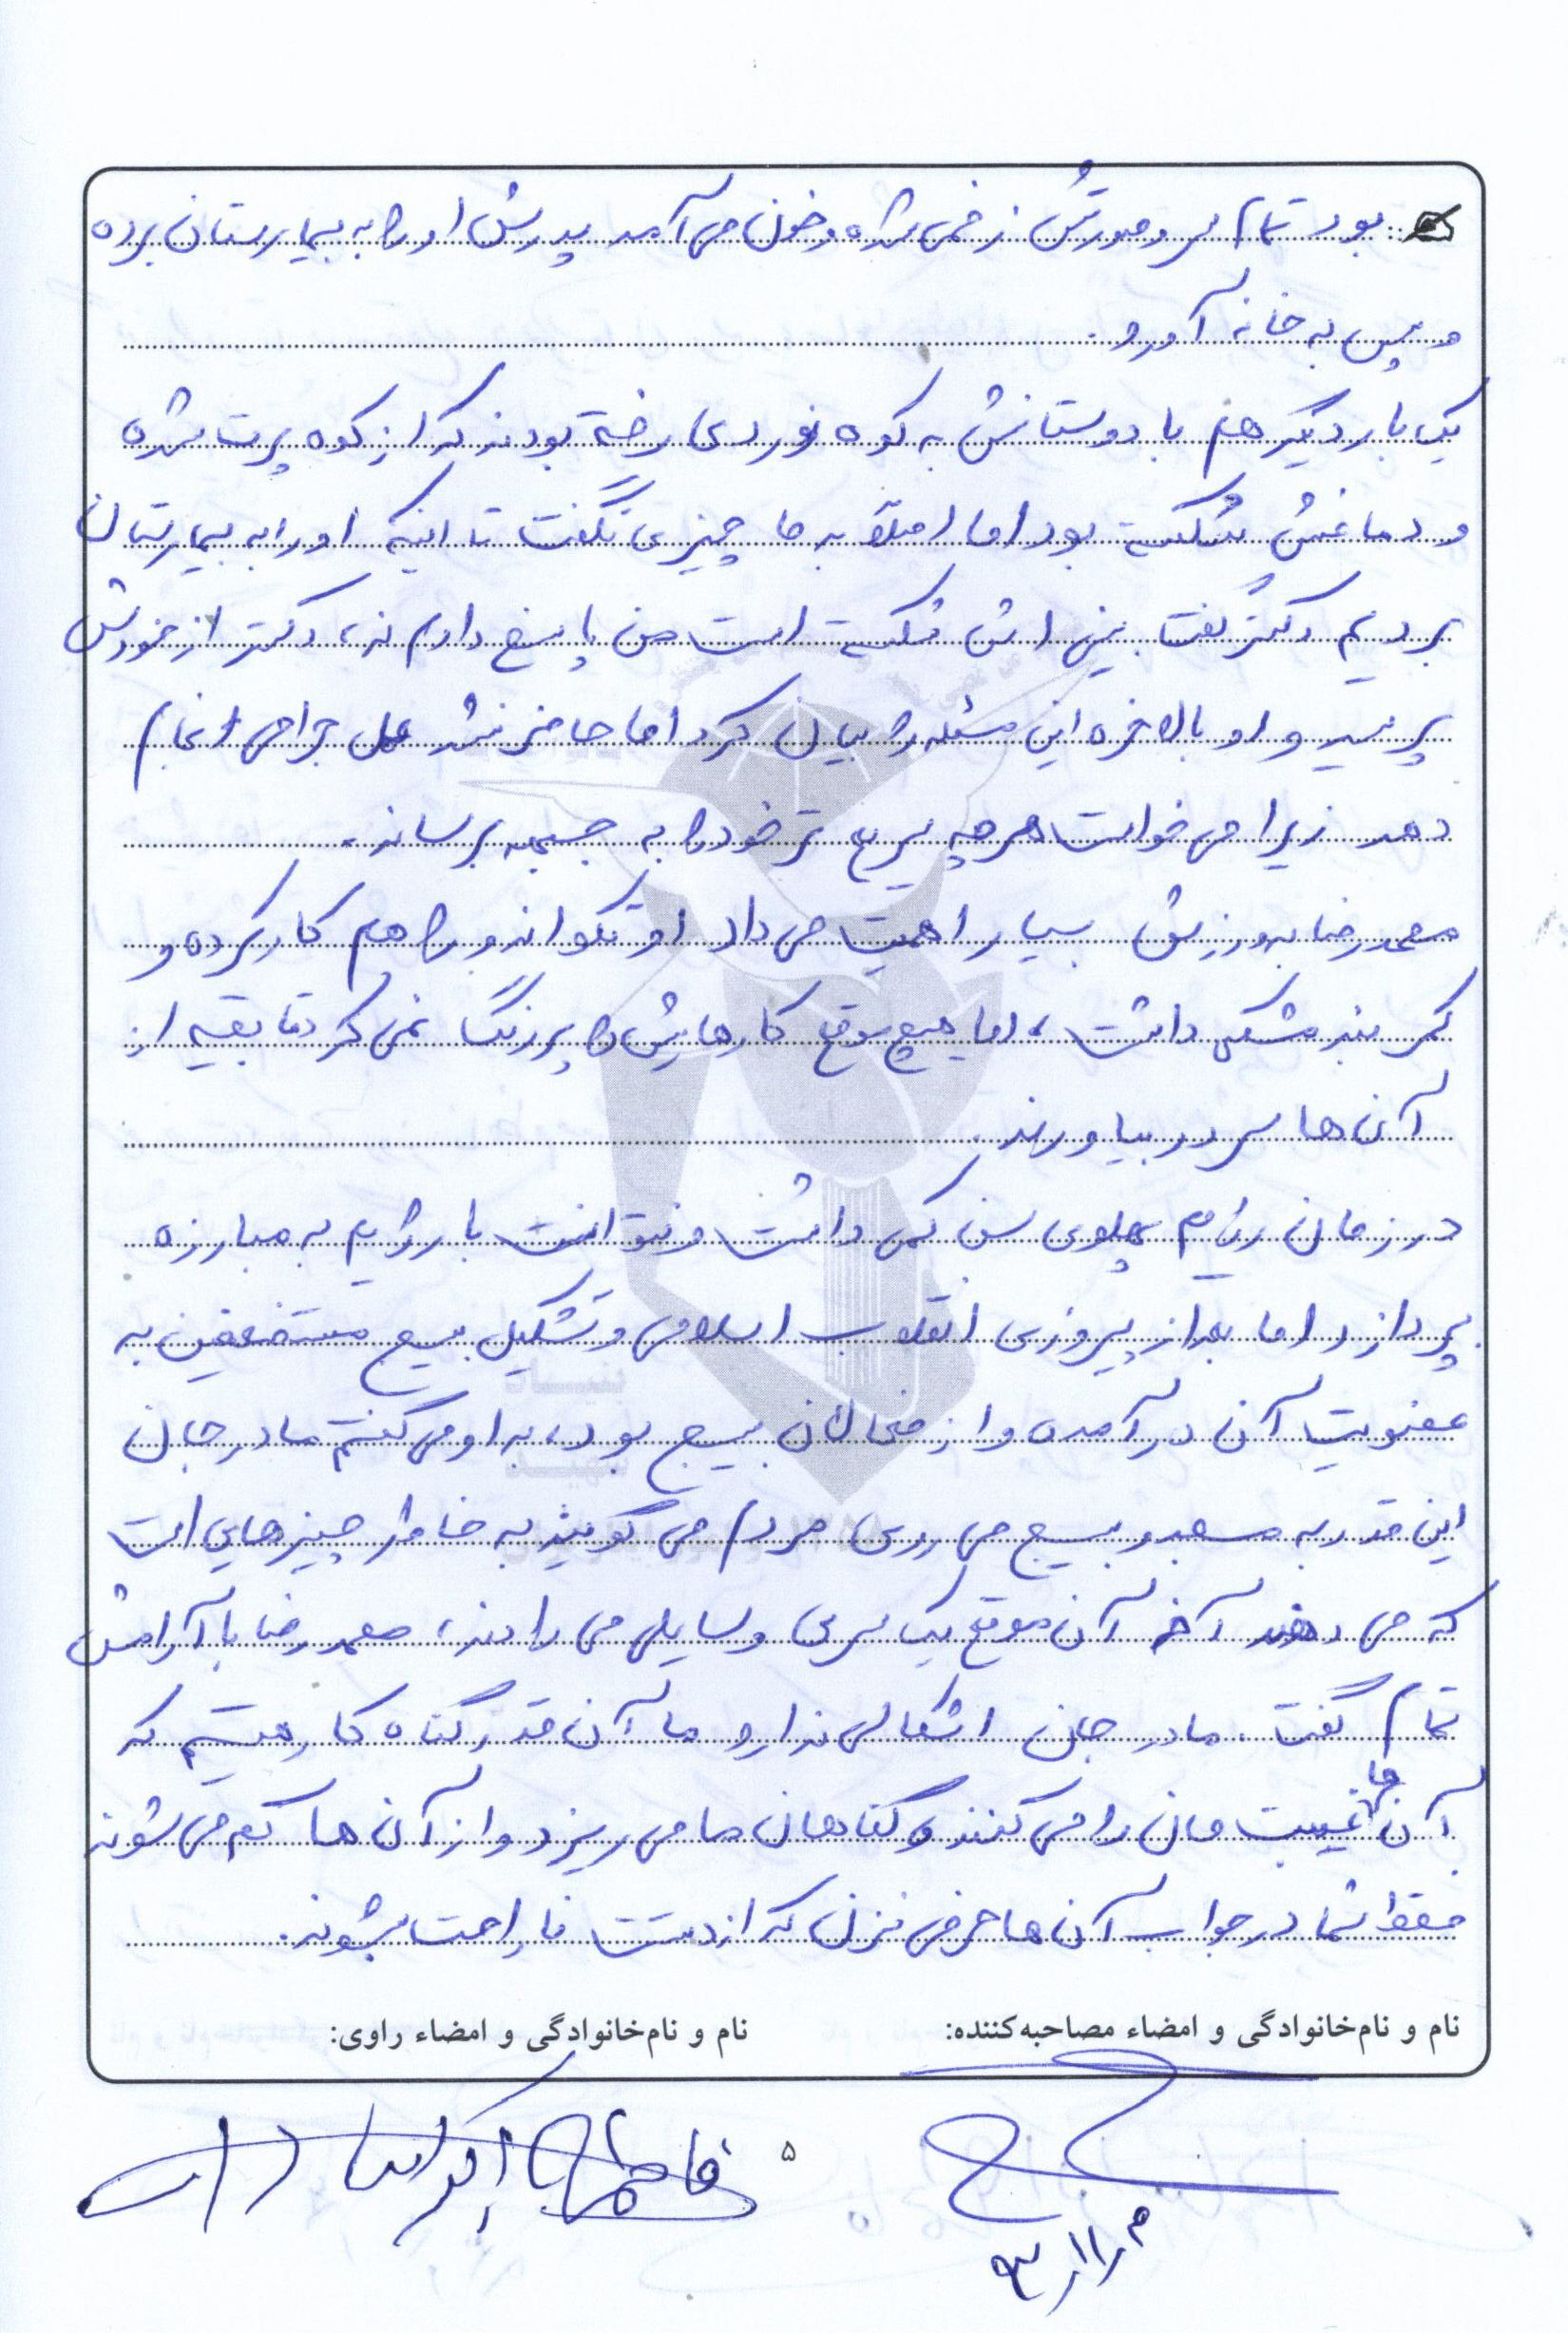 بود تمام سر و صورتش زخمی شده و خون می آمد پدرش او را به بیمارستان برده
و سپس به خانه آورد.
یک بار دیگر هم با دوستانش به کوه نوردی رفته بودند که از کوه پرت شده
و دماغش شکسته بود اما اصلاً به ما چیزی نگفت تا اینکه او را به بیمارستان
بردیم دکتر گفت بینی اش شکسته است من پاسخ دادم نه، دکتر از خودش
پرسید و او بالاخره این مسئله را بیان کرد اما حاضر نشد عمل جراحی انجام
دهد زیرا می خواست هر چه سریع تر خود را به جبهه برساند.
محمدرضا به ورزش بسیار اهمیت می داد او تکواندو را هم کار کرده و
کمر بند مشکی داشت، اما هیچ موقع کارهایش را پررنگ نمی کرد تا بقیه از
آن ها سر در بیاورند.
در زمان رژیم پهلوی سن کمی داشت و نتوانست با رژیم به مبارزه
بپردازد اما بعد از پیروزی انقلاب اسلامی و تشکیل بسیج مستضعفین به
عضویت آن در آمده و از فعالان بسیج بود، به او می گفتم مادر جان
این قدر به مسجد و بسیج می روی مردم می گویند به خاطر چیزهایی است
که می دهند آخر آن موقع یک سری وسایلی می دادند، محمدرضا با آرامش
تمام گفت. مادر جان اشکالی ندارد ما آن قدر گناه کار هستیم که
آن ها غیبت مان را می کنند و گناهان ما می ریزد و از آن ها کم می شوند
فقط شما در جواب آن ها حرفی نزن که از دستت ناراحت بشوند.
نام و نام‌خانوادگی و امضاء مصاحبه‌کننده: نام و نام‌خانوادگی و امضاء راوی:
فاطمه
۵